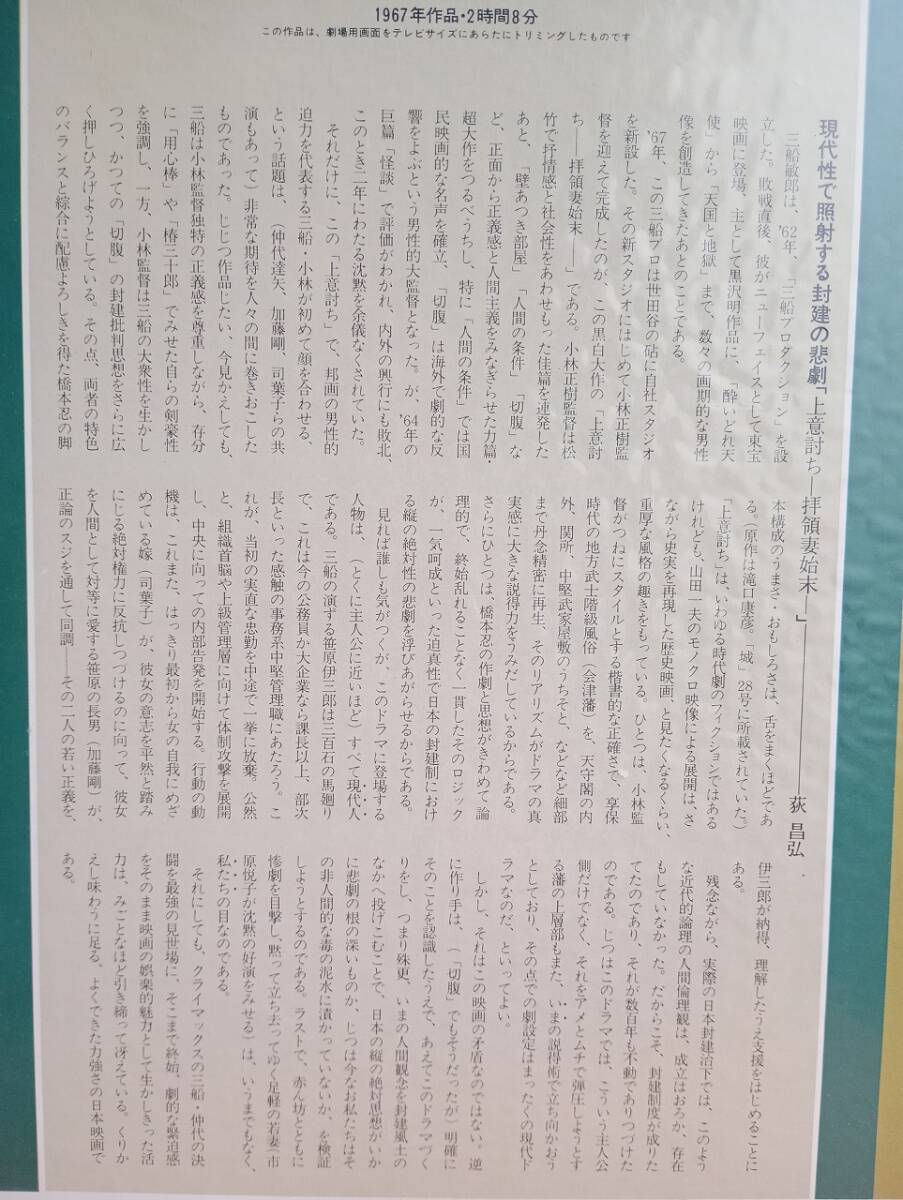 1967年作品・2時間8分
この作品は、劇場用画面をテレビサイズにあらたにトリミングしたものです
現代性で照射する封建の悲劇「上意討ち―拝領妻始末―」――――荻 昌弘
三船敏郎は、'62年、「三船プロダクション」を設
立した。敗戦直後、彼がニューフェイスとして東宝
映画に登場、主として黒沢明作品に、「酔いどれ天
使」から「天国と地獄」まで、数々の画期的な男性
像を創造してきたあとのことである。
'67年、この三船プロは世田谷の砧に自社スタジオ
を新設した。その新スタジオにはじめて小林正樹監
督を迎えて完成したのが、この黒白大作の「上意討
ち――拝領妻始末――」である。小林正樹監督は松
竹で抒情感と社会性をあわせもった佳篇を連発した
あと、「壁あつき部屋」「人間の条件」「切腹」な
ど、正面から正義感と人間主義をみなぎらせた力篇・
超大作をつるべうちし、特に「人間の条件」では国
民映画的な名声を確立、「切腹」は海外で劇的な反
響をよぶという男性的大監督となった。が、'64年の
巨篇「怪談」で評価がわかれ、内外の興行にも敗北、
このとき二年にわたる沈黙を余儀なくされていた。
それだけに、この「上意討ち」で、邦画の男性的
迫力を代表する三船・小林が初めて顔を合わせる、
という話題は、（仲代達矢、加藤剛、司葉子らの共
演もあって）非常な期待を人々の間に巻きおこした
ものであった。じじつ作品じたい、今見かえしても、
三船は小林監督独特の正義感を尊重しながら、存分
に「用心棒」や「椿三十郎」でみせた自らの剣豪性
を強調し、一方、小林監督は三船の大衆性を生かし
つつ、かつての「切腹」の封建批判思想をさらに広
く押しひろげようとしている。その点、両者の特色
のバランスと綜合に配慮よろしきを得た橋本忍の脚
本構成のうまさ・おもしろさは、舌をまくほどであ
る。（原作は滝口康彦。「城」28号に所載されていた。）
「上意討ち」は、いわゆる時代劇のフィクションではある
けれども、山田一夫のモノクロ映像による展開は、さ
ながら史実を再現した歴史映画、と見たくなるくらい、
重厚な風格の趣きをもっている。ひとつは、小林監
督がつねにスタイルとする楷書的な正確さで、享保
時代の地方武士階級風俗（会津藩）を、天守閣の内
外、関所、中堅武家屋敷のうちそと、などなど細部
まで丹念精密に再生、そのリアリズムがドラマの真
実感に大きな説得力をうみだしているからである。
さらにひとつは、橋本忍の作劇と思想がきわめて論
理的で、終始乱れることなく一貫したそのロジック
が、一気呵成といった迫真性で日本の封建制におけ
る縦の絶対性の悲劇を浮びあがらせるからである。
見れば誰しも気がつくが、このドラマに登場する
人物は、（とくに主人公に近いほど）すべて現代人
である。三船の演する笹原伊三郎は三百石の馬廻り
で、これは今の公務員か大企業なら課長以上、部次
長といった感触の事務系中堅管理職にあたろう。こ
れが、当初の実直な忠勤を中途で一挙に放棄。公然
と、組織首脳や上級管理層に向けて体制攻撃を展開
し、中央に向っての内部告発を開始する。行動の動
機は、これまた、はっきり最初から女の自我にめざ
めている嫁（司葉子）が、彼女の意志を平然と踏み
にじる絶対権力に反抗しつづけるのに向って、彼女
を人間として対等に愛する笹原の長男（加藤剛）が、
正論のスジを通して同調――その二人の若い正義を、
伊三郎が納得、理解したうえ支援をはじめることに
ある。
残念ながら、実際の日本封建治下では、このよう
な近代的論理の人間倫理観は、成立はおろか、存在
もしていなかった。だからこそ、封建制度が成りた
てたのであり、それが数百年も不動でありつづけた
のである。じつはこのドラマでは、こういう主人公
側だけでなく、それをアメとムチで弾圧しようとす
る藩の上層部もまた、いまの説得術で立ち向かおう
としており、その点での劇設定はまったくの現代ド
ラマなのだ、といってよい。
しかし、それはこの映画の矛盾なのではない。逆
に作り手は、（「切腹」でもそうだったが）明確に
そのことを認識したうえで、あえてこのドラマづく
りをし、つまり殊更、いまの人間観念を封建風土の
なかへ投げこむことで、日本の縦の絶対思想がいか
に悲劇の根の深いものか、じつは今なお私たちはそ
の非人間的な毒の泥水に漬かっていないか、を検証
しようとするのである。ラストで、赤ん坊とともに
惨劇を目撃し、黙って立ち去ってゆく足軽の若妻（市
原悦子が沈黙の好演をみせる）は、いうまでもなく、
私たちの目なのである。
それにしても、クライマックスの三船・仲代の決
闘を最強の見世場に、そこまで終始、劇的な緊迫感
をそのまま映画の娯楽的魅力として生かしきった活
力は、みごとなほど引き締って冴えている。くりか
えし味わうに足る、よくできた力強さの日本映画で
ある。